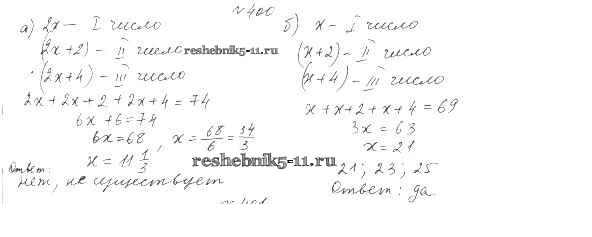 № 400
а) 2x – I число
(2x+2) – II число
(2x+4) – III число
2x + 2x + 2 + 2x + 4 = 74
6x + 6 = 74
6x = 68, x = 68/6 = 34/3
x = 11 1/3
Ответ:
нет, не существует
б) x – I число
(x+2) – II число
(x+4) – III число
x + x + 2 + x + 4 = 69
3x = 63
x = 21
21; 23; 25
Ответ: да.
reshebnik5-11.ru
reshebnik5-11.ru
№ 401